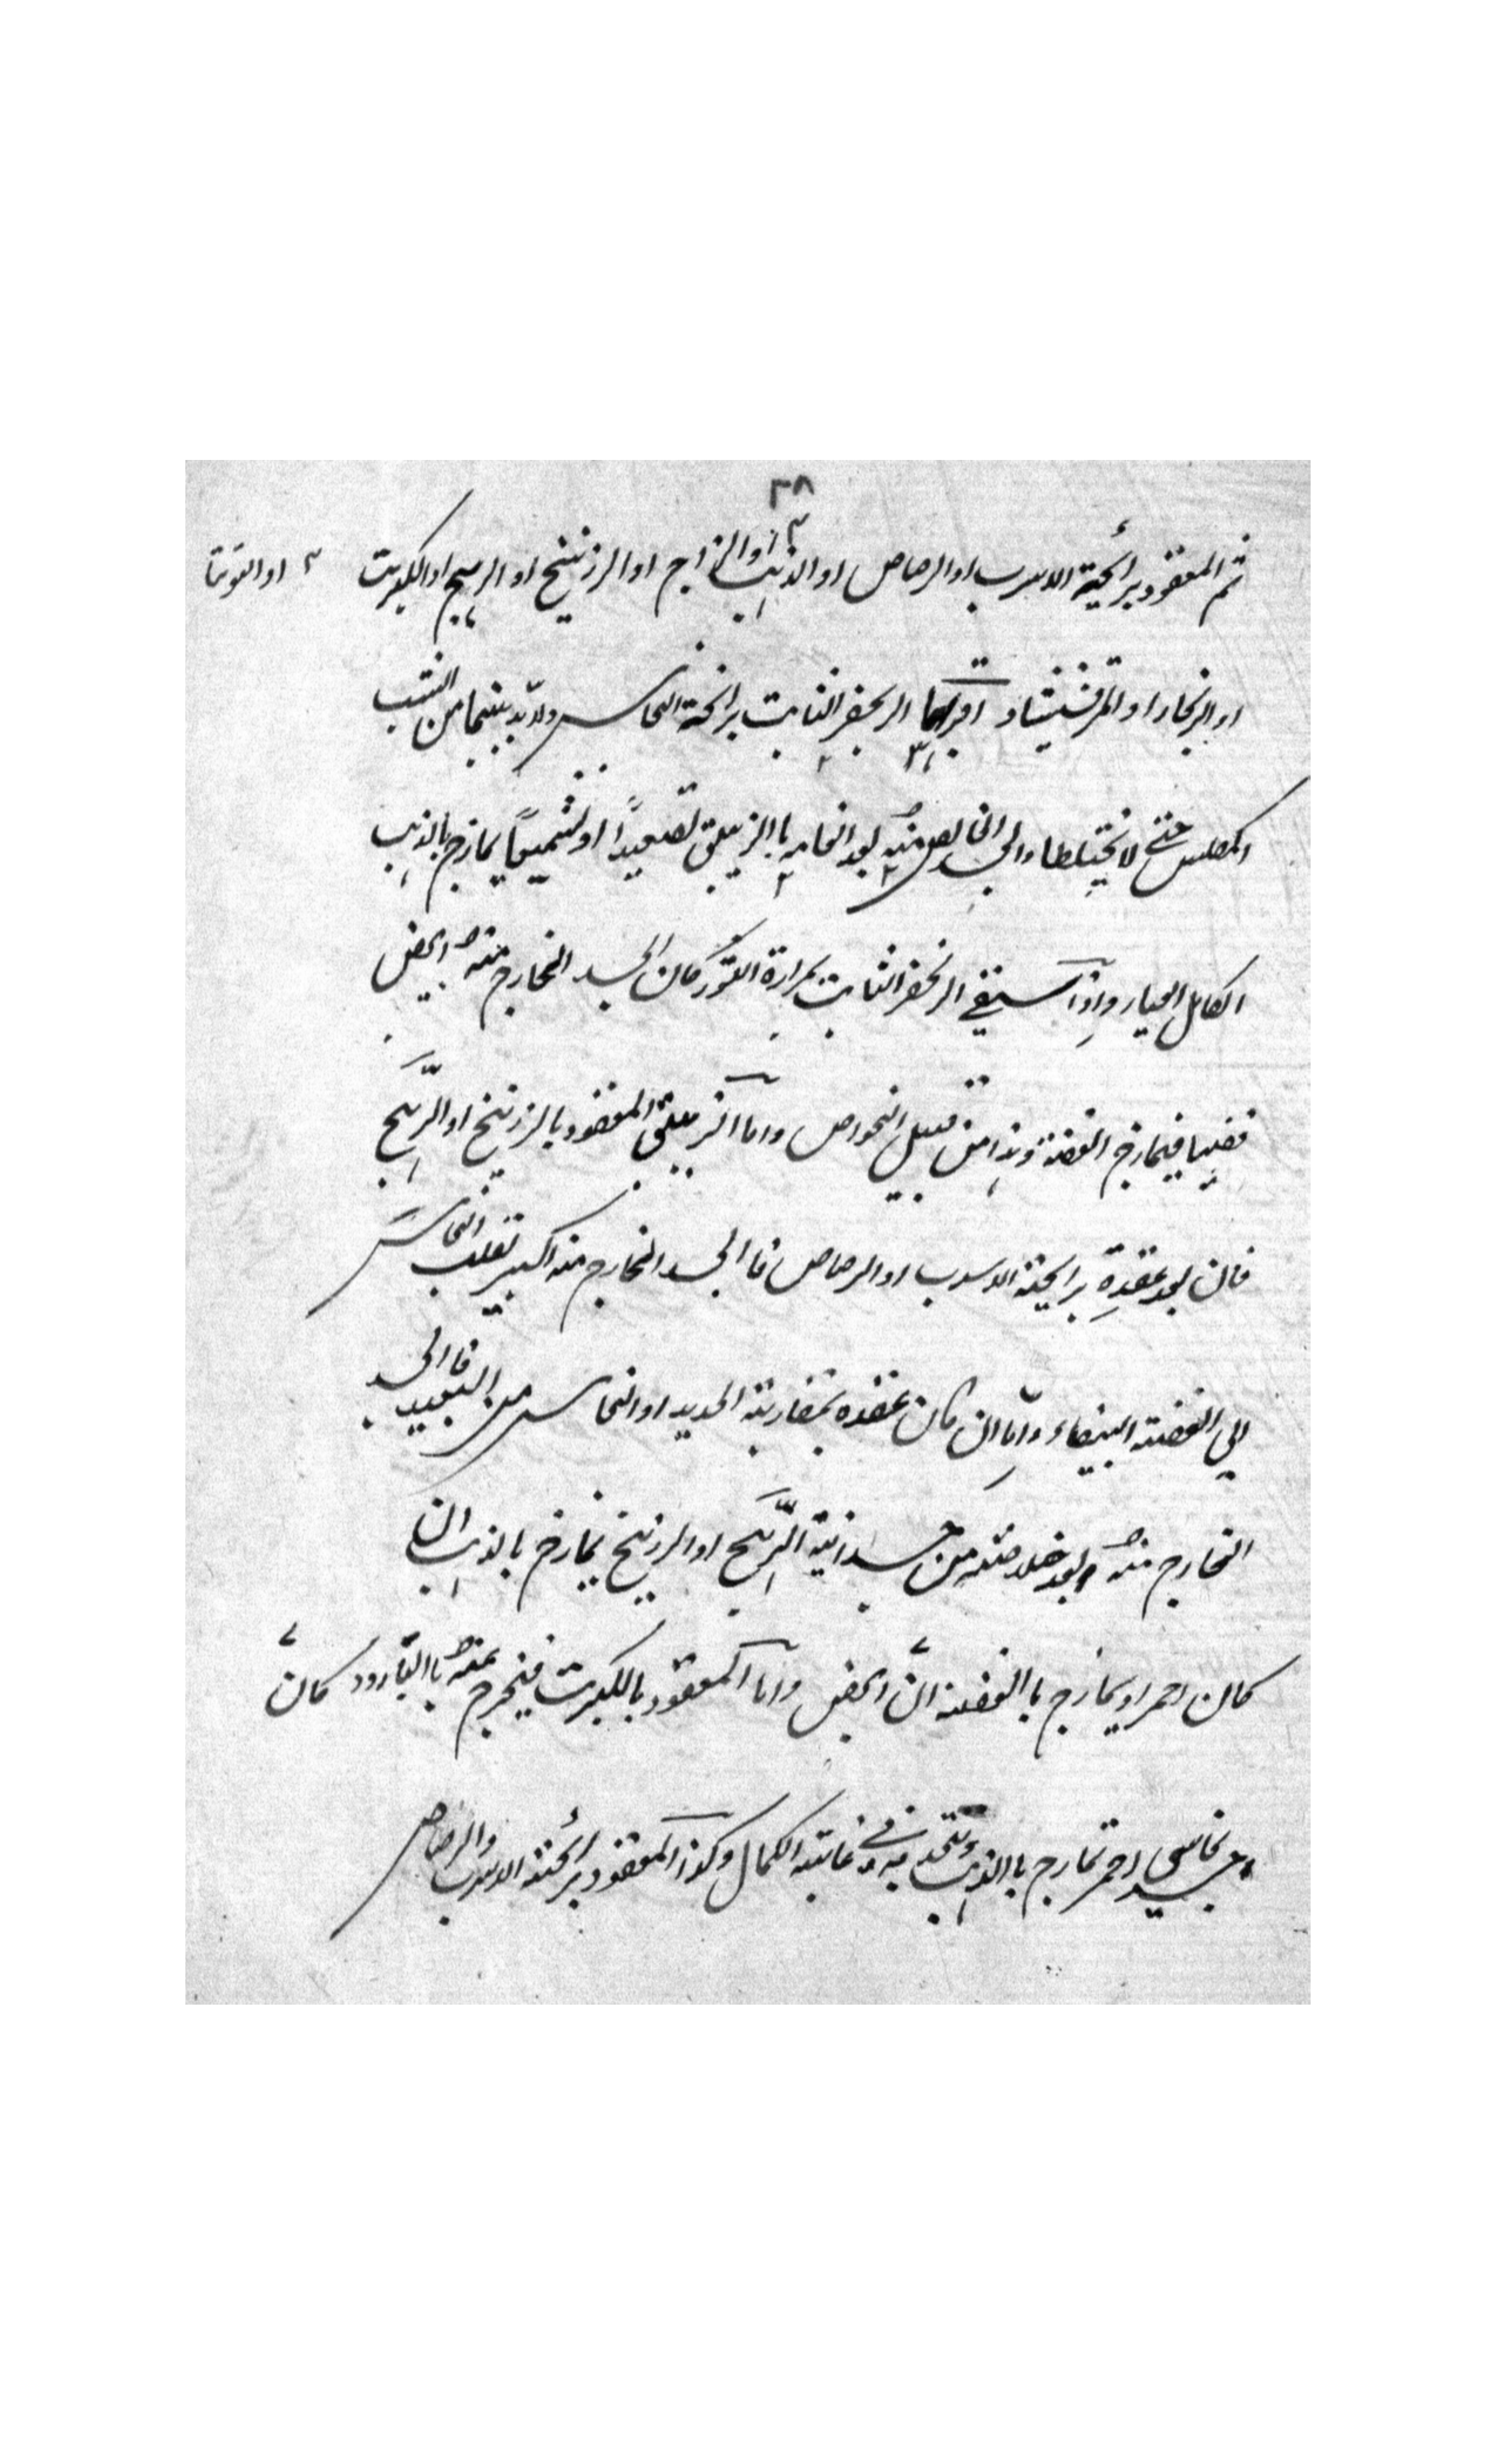 ٣٨
ثم المعقود برائحية الاسرب او الرصاص او الذهب او الزاج او الزرنيخ او الرهج او الكبريت او التوتيا
او الزنجار او المرقشيشا و الزنجفر الثابت برائحة النحاس ولابد بينهما من الشب
المكلس حتى لا يختلطا والجسد الخالص منه بعد الحامه با الزيبق تصعيداً او تشميعاً يمازج بالذهب
الكامل العيار واذا سقي الزنجفر الثابت بمرارة الثور كان الجسد الخارج منه ابيض
فضيا فيمازج الفضة وهذا من قبيل الخواص واما الزيبق المعقود بالزرنيخ او الرهج
فان بعد عقده برايحة الاسرب او الرصاص فا الجسد الخارج منه اكسير تقلب النحاس
الي الفضة البيضاء واما ان كان عقده بمقاربة الحديد او النحاس من البعيد فا الجسد
الخارج منه بعد خلاصه من جسدانية الرهج او الزرنيخ يمازج بالذهب ان
كان احمر او يمازج با الفضة ان ابيض واما المعقود بالكبريت فيخرج عنه با البارود كان
جسد نحاسي احمر تمازج با الذهب وتتحد به في غاية الكمال وكذا المعقود برائحة الاسرب والرصاص